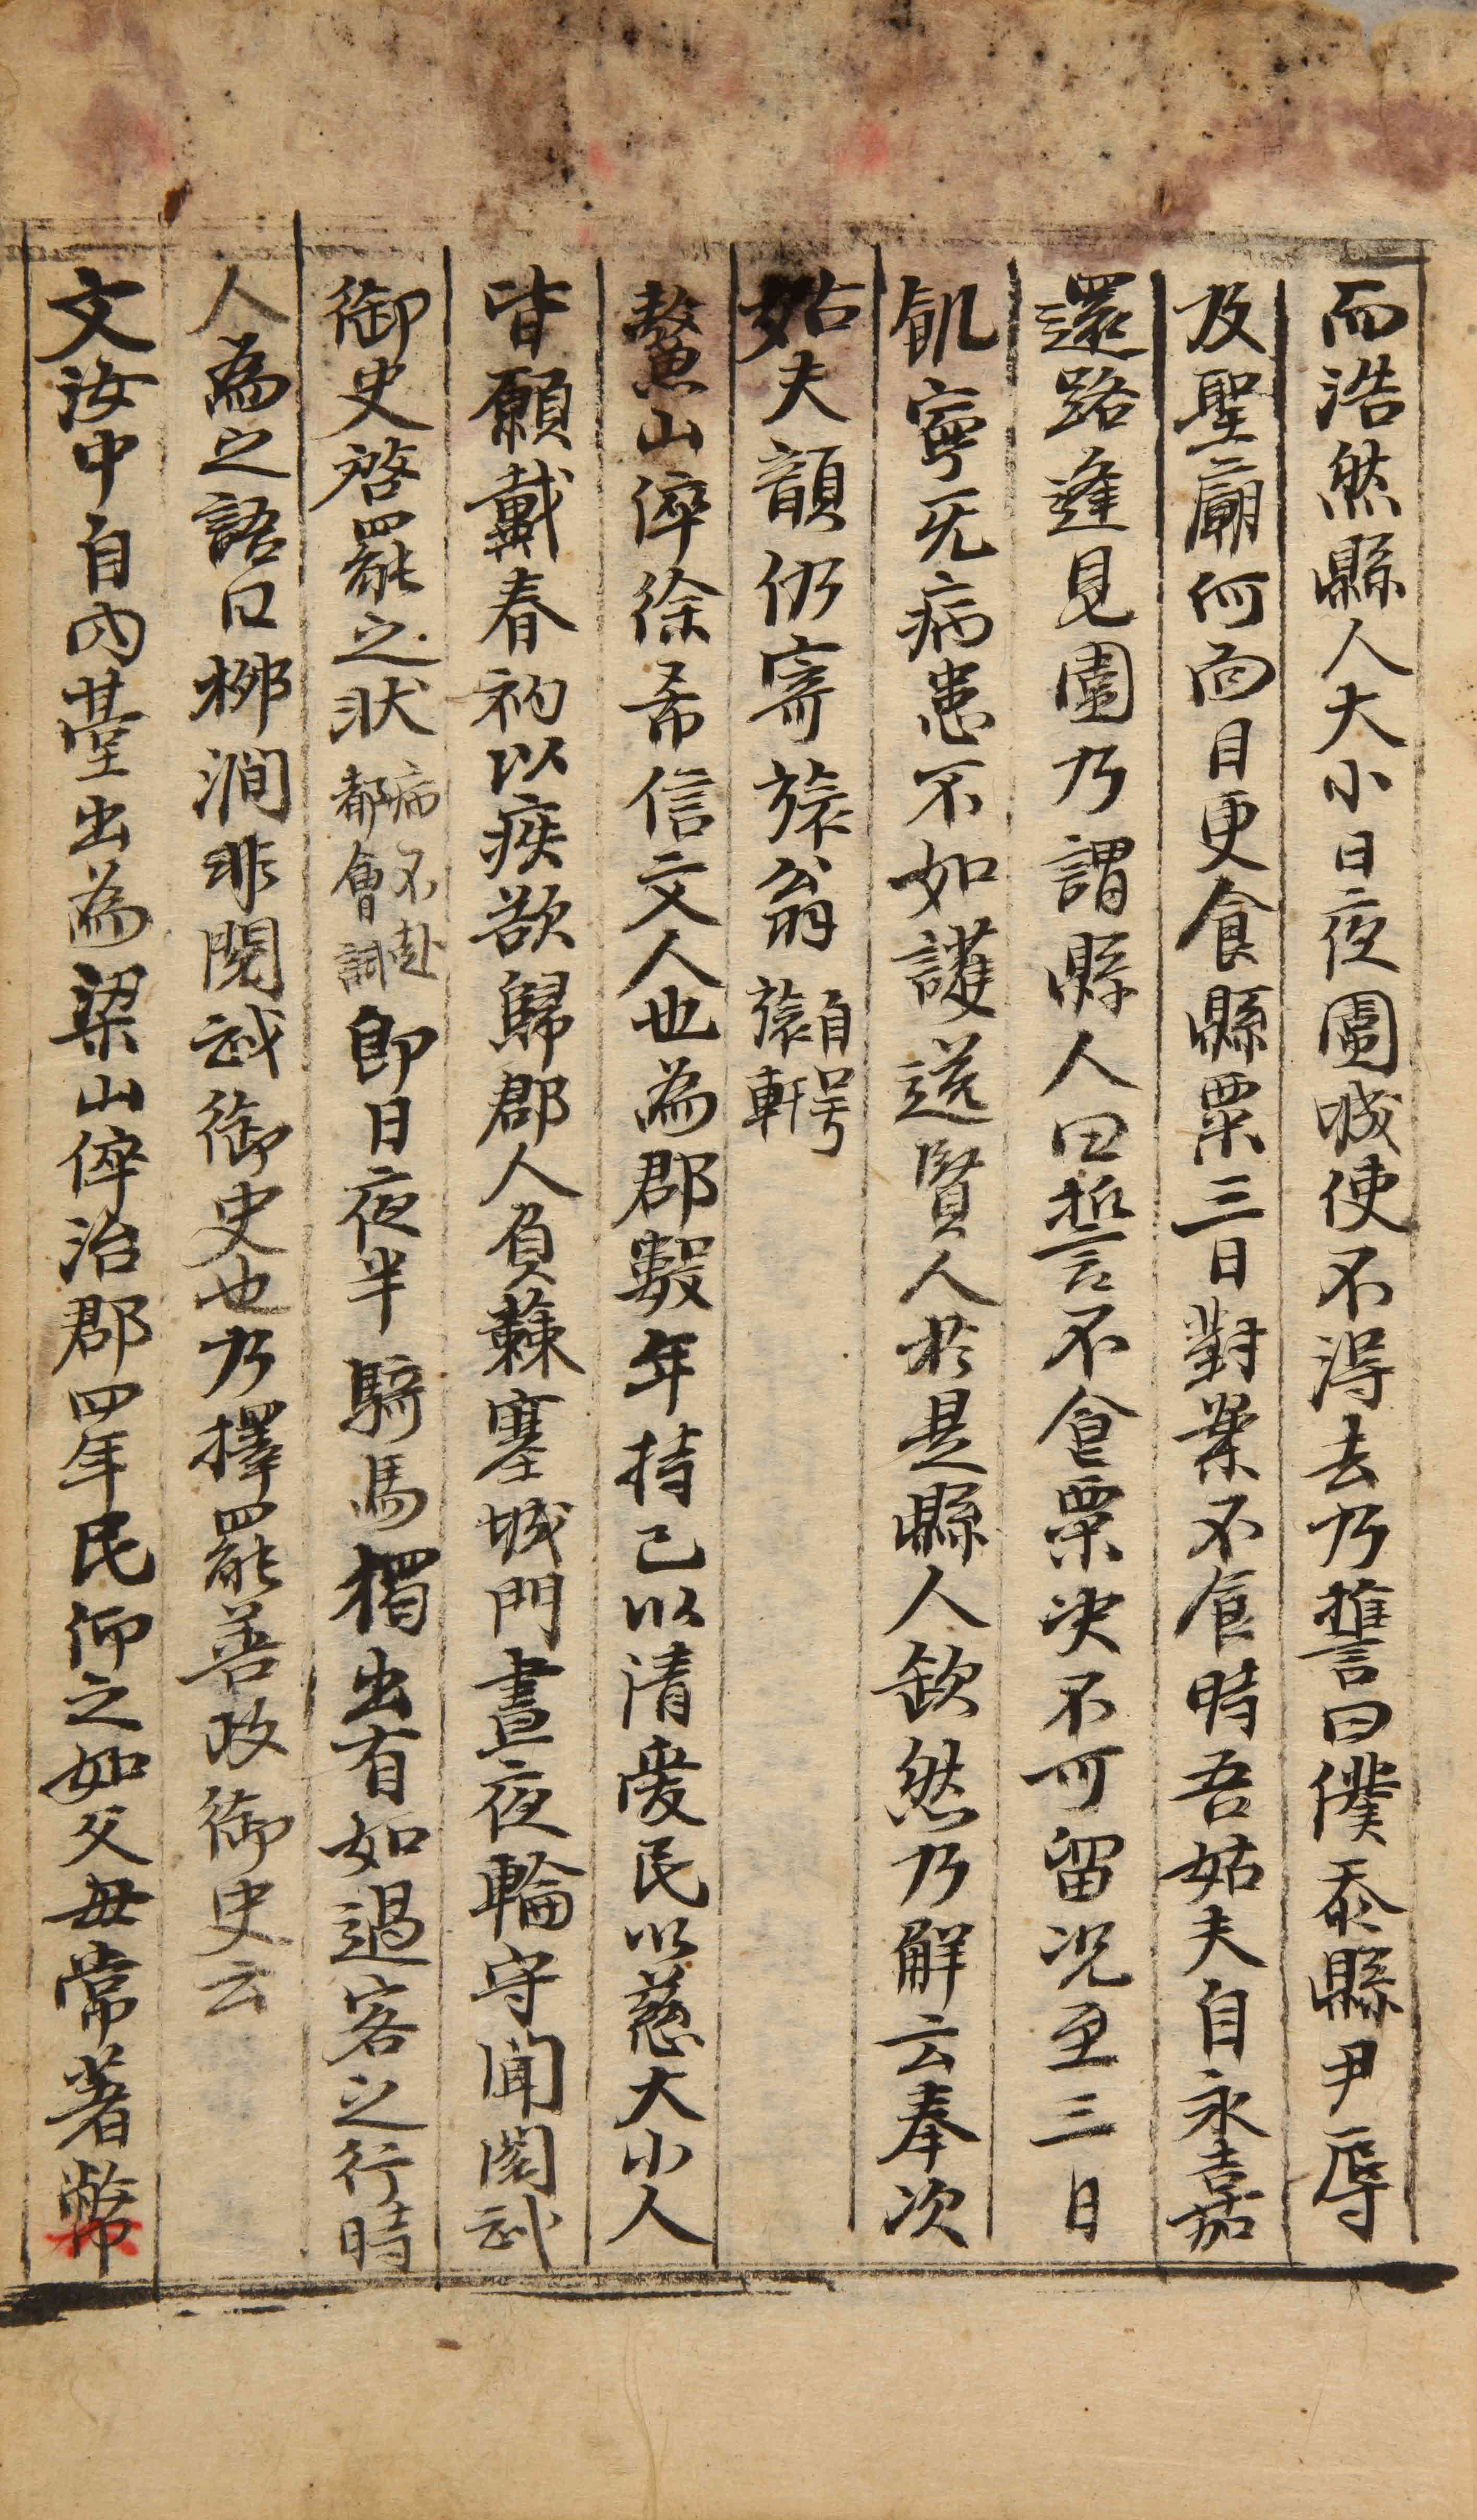 而浩然縣人大小日夜圍城使不得去乃誓曰僕忝縣尹辱
及聖廟何面目更食縣粟三日對業不食時吾姑夫自永嘉
還路逢見圍乃謂縣人曰誓不食粟决不可留况至三日
飢寧旡病患不如護送賢人於是縣人欽然乃解云奉次
姑夫韻仍寄猿翁自號猿軒
鰲山倅徐希信文人也為郡數年持己以清愛民以慈大小人
皆願戴春初以疾欲歸郡人負蕀塞城門晝夜輪守聞閱武
御史啓罷之狀病不赴都會試即日夜半騎馬獨出有如過客之行時
人為之語曰柳澗非閱武御史也乃擇罷善政御史云
文汝中自內臺出為梁山倅治郡四年民仰之如父母常著幣